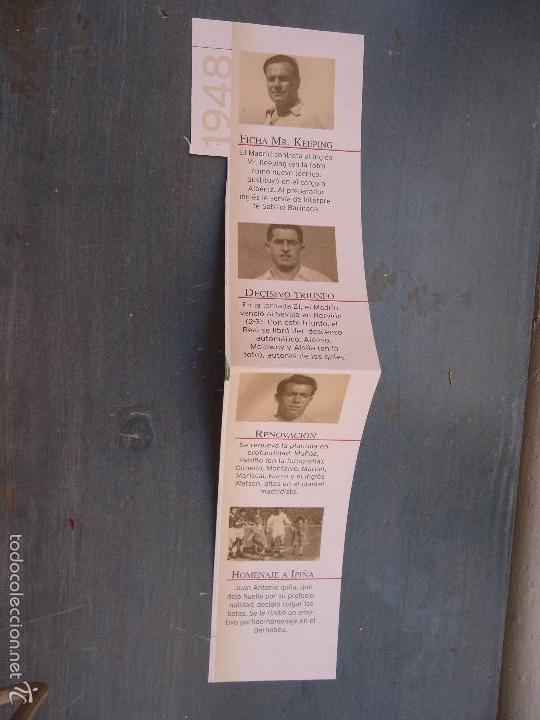 1948
FICHA MR. KEEPING
El Madrid contrata al inglés
Mr. Keeping (en la foto)
como nuevo técnico.
Sustituyó en el cargo a
Albéniz. Al preparador
inglés le servía de intérpre
te Sabino Barinaga.
DECISIVO TRIUNFO
En la jornada 21, el Madrid
venció al Sevilla en Nervión
(2-3). Con este triunfo, el
Real se libró del descenso
automático. Alonso,
Molowny y Alsúa (en la
foto), autores de los goles.
RENOVACIÓN
Se renueva la plantilla en
profundidad. Muñoz,
Pahiño (en la fotografía),
Olmedo, Montalvo, Marcet,
Mariscal, Narro y el inglés
Watson, altas en el plantel
madridista.
HOMENAJE A IPIÑA
Juan Antonio Ipiña, que
dejó huella por su profesio
nalidad, decidió colgar las
botas. Se le rindió un emo
tivo partido-homenaje en el
Bernabéu.
todocoleccion.net